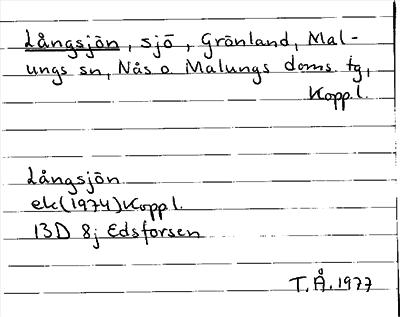 Långsjön, sjö, Grönland, Mal-
ungs sn, Nås o. Malungs doms. tg,
Kopp.l.
Långsjön
ek(1974)Kopp l.
13D 8j Edsforsen
T.Å. 1977